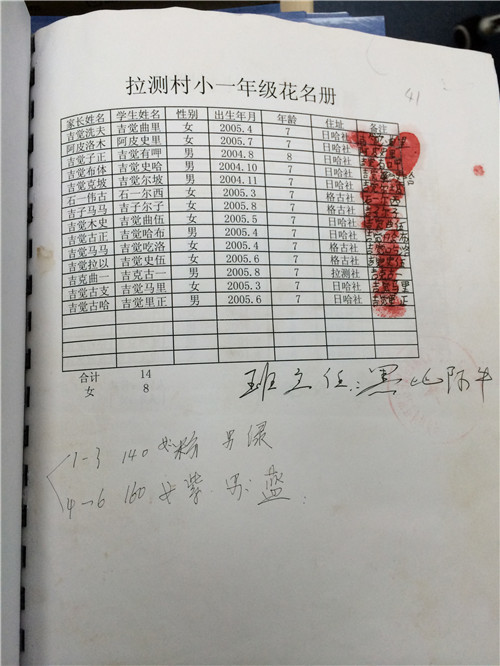 拉测村小一年级花名册
41
家长姓名 学生姓名 性别 出生年月 年龄 住址 备注
吉觉洗夫 吉觉曲里 女 2005.4 7 日哈社
阿皮洛木 阿皮史里 女 2005.7 7 日哈社
吉觉子正 吉觉有呷 男 2004.8 8 日哈社
吉觉布体 吉觉史哈 男 2004.10 7 日哈社
吉觉克坡 吉觉尔坡 男 2004.11 7 日哈社
石一伟古 石一尔西 女 2005.3 7 格古社
吉子马马 吉子尔子 女 2005.8 7 格古社
吉觉木史 吉觉曲伍 女 2005.5 7 日哈社
吉觉古正 吉觉哈布 男 2005.4 7 日哈社
吉觉马马 吉觉吃洛 女 2005.4 7 格古社
吉觉拉以 吉觉史伍 女 2005.6 7 格古社
吉克曲一 吉克古一 男 2005.8 7 拉测社
吉觉古支 吉觉马里 女 2005.3 7 日哈社
吉觉古哈 吉觉里正 男 2005.6 7 日哈社
合计 14
女 8
班主任:黑比阿牛
1-3 140 女粉 男绿
4-6 160 女紫 男:蓝